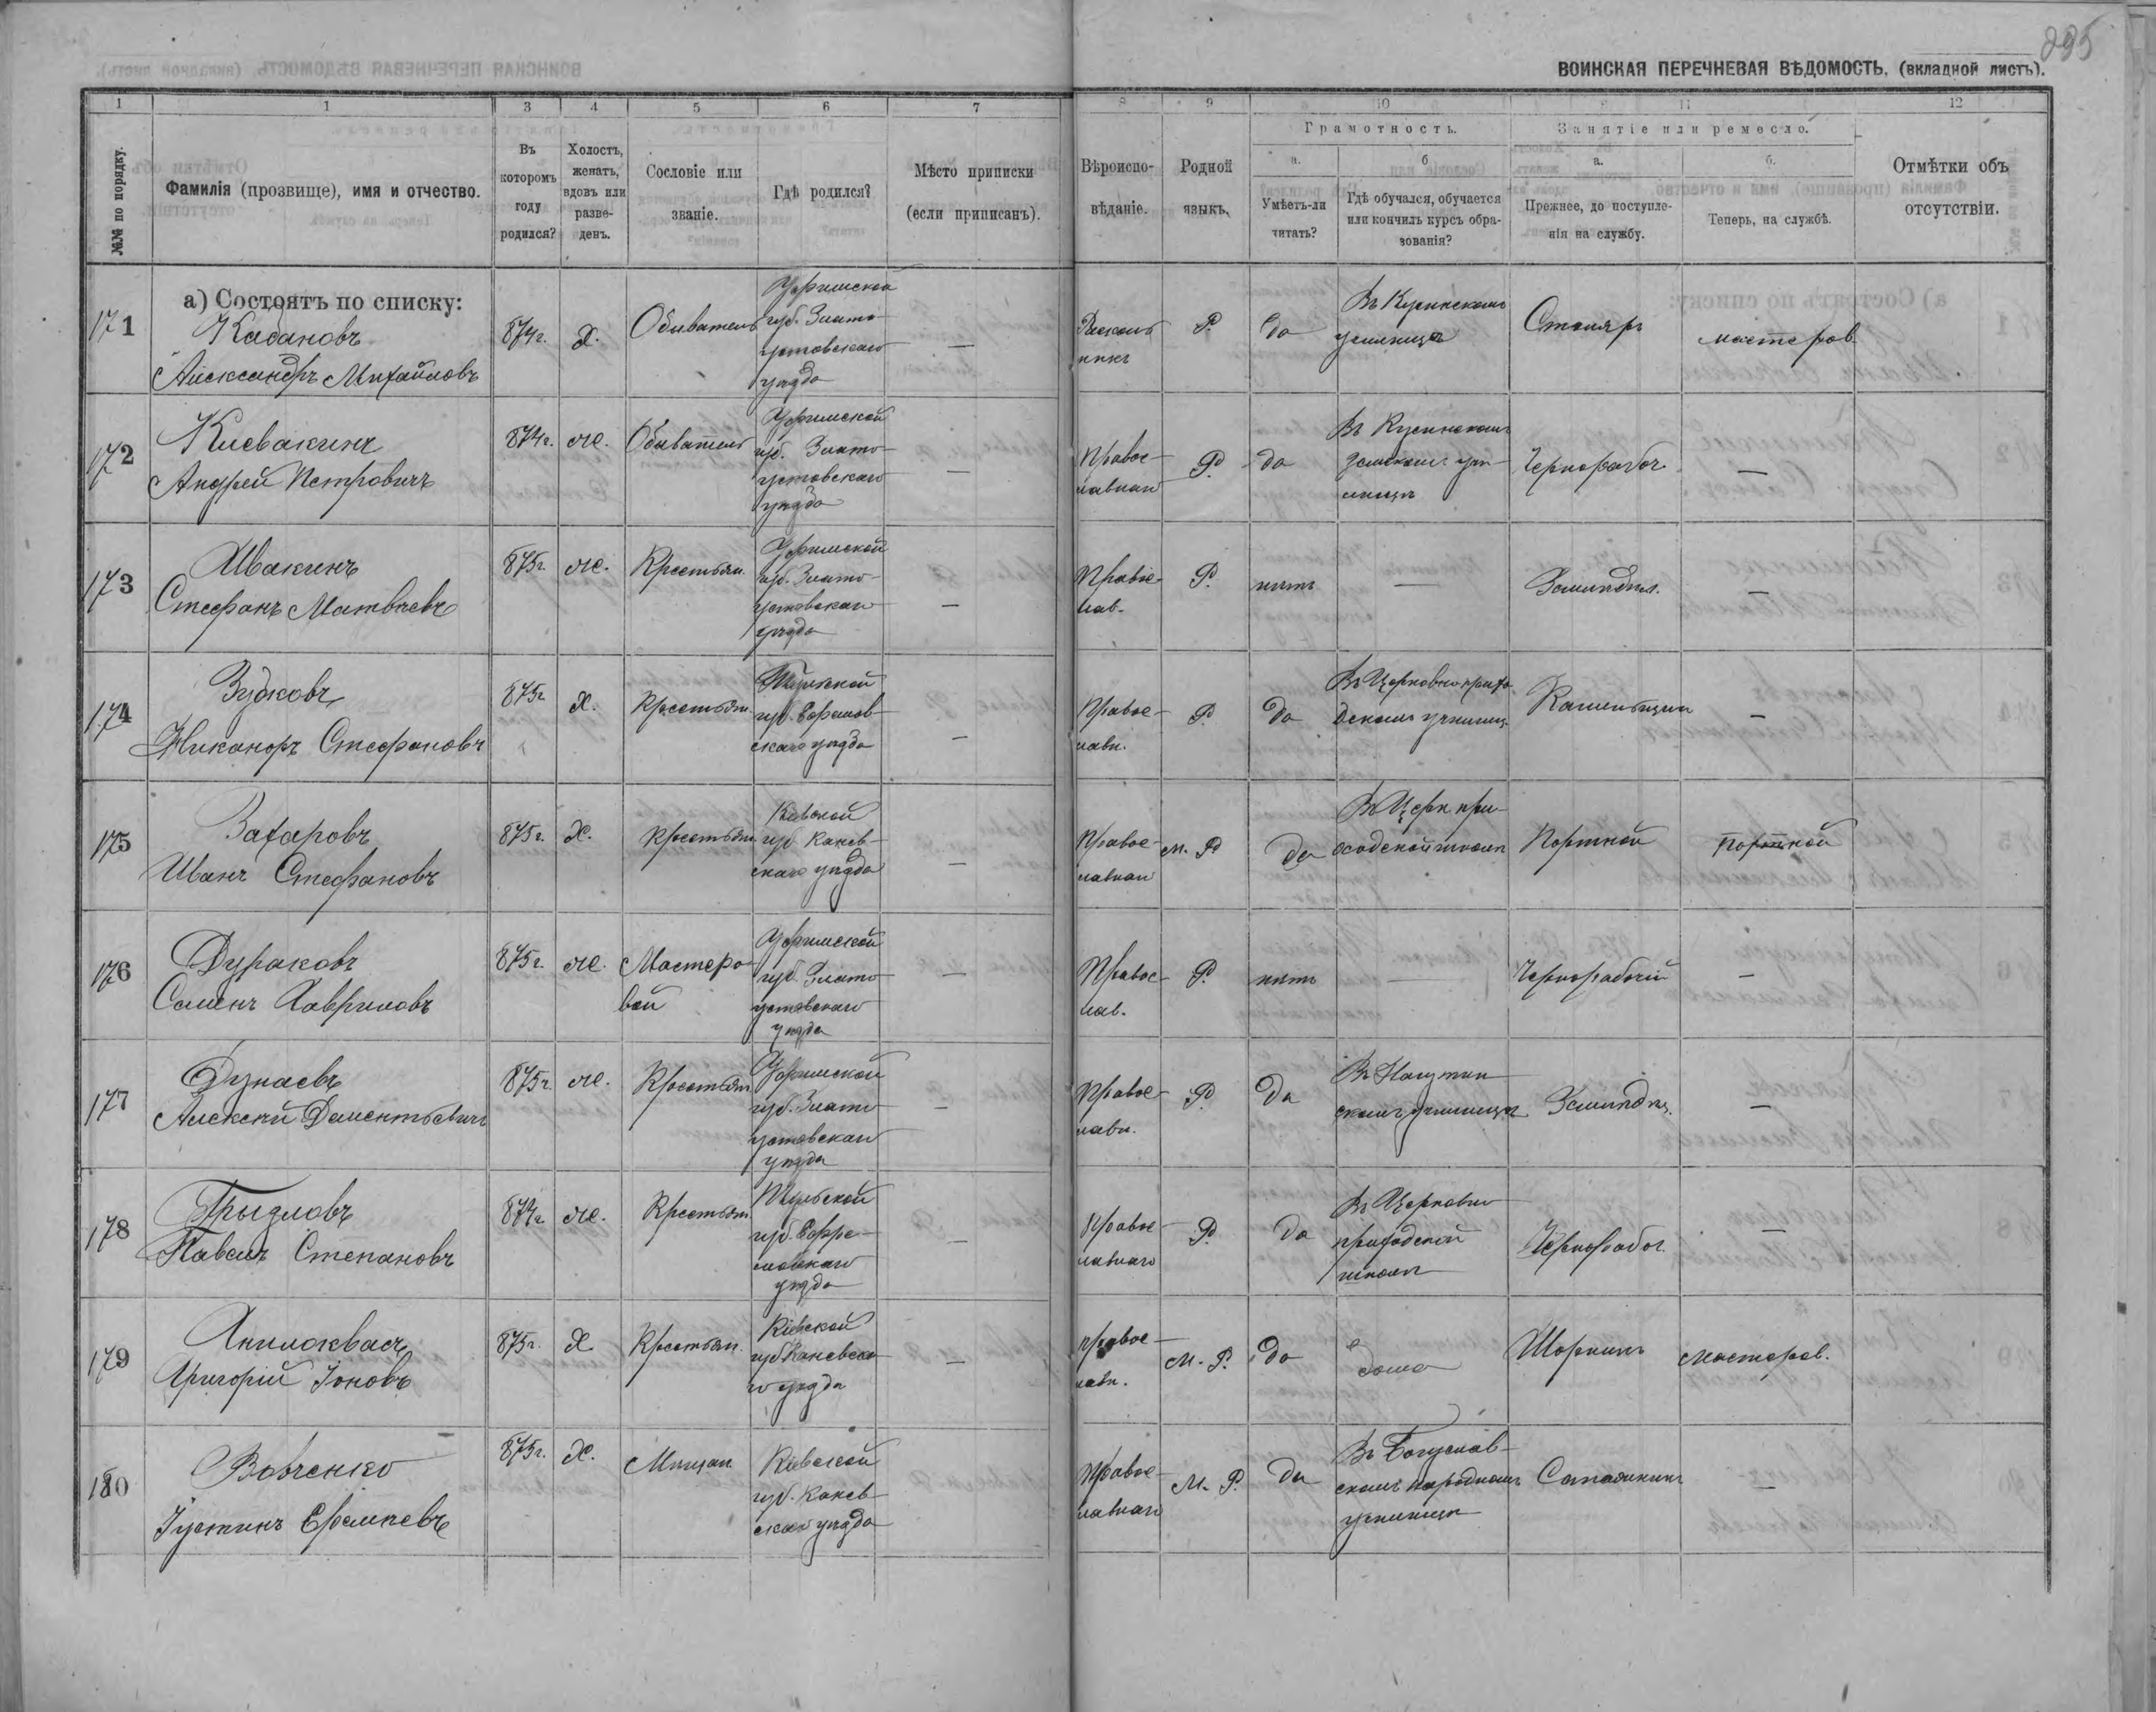 295
ВОИНСКАЯ ПЕРЕЧНЕВАЯ ВѢДОМОСТЬ, (вкладной листъ).
1 1 3 4 5 6 7 8 9 10 11 12
№№ по порядку.
Фамилія (прозвище), имя и отчество.
Въ которомъ году родился?
Холостъ, женатъ, вдовъ или разве-денъ.
Сословіе или званіе.
Гдѣ родился?
Мѣсто приписки (если приписанъ).
Вѣроиспо-вѣданіе.
Родной языкъ.
Грамотность.
а. Умѣетъ-ли читать?
б. Гдѣ обучался, обучается или кончилъ курсъ обра-зованія?
Занятіе или ремесло.
а. Прежнее, до поступле-нія на службу.
б. Теперь, на службѣ.
Отмѣтки объ отсутствіи.
а) Состоятъ по списку:
171 Кабановъ
Александръ Михайловъ
874г. Х. Обыватель
Уфимской
губ. Злато-
устовскаго
уѣзда
—
Расколь
никъ
Р. да
Въ Кусинскомъ
училищѣ
Столяръ мастеров.
172 Кисвакинъ
Андрей Петровичъ
874г. же. Обыватель
Уфимской
губ. Злато-
устовскаго
уѣзда
—
Правос-
лавнаго
Р. да
Въ Кусинскомъ
земскомъ учи-
лищѣ
Чернорабоч. —
173 Ивакинъ
Стефанъ Матвѣевъ
875г. же. Крестьян.
Уфимской
губ. Злато-
устовскаго
уѣзда
—
Правос-
лав.
Р. нѣтъ — Земледѣл. —
174 Зубковъ
Никаноръ Стефановъ
875г. Х. Крестьян.
Тульской
губ. Ефремов-
скаго уѣзда
—
Правос-
лавн.
Р. да
Въ Церковно-прихо
дскомъ училищ.
Каменьщикъ —
175 Захаровъ
Иванъ Стефановъ
875г. Х. Крестьян.
Кіевской
губ. Канев-
скаго уѣзда
—
Правос-
лавнаго
м. Р. да
Въ Церк при-
ходской школѣ
Портной портной
176 Дураковъ
Семенъ Гавриловъ
875г. же. Мастеро-
вой
Уфимской
губ. Злато-
устовскаго
уѣзда
—
Правос-
лав.
Р. нѣтъ — Чернорабочій —
177 Дунаевъ
Алексѣй Дементьевичъ
875г. же. Крестьян.
Уфимской
губ. Злато-
устовскаго
уѣзда
—
Правос-
лавн.
Р. да
скомъ училищѣ
Земледѣл. —
178 Грызловъ
Павелъ Степановъ
874г. же. Крестьян.
Тульской
губ. Ефре-
мовскаго
уѣзда
—
Правос-
лавнаго
Р. да
Въ Церковно
приходской
школѣ
Чернорабоч. —
179 Гнилоквасъ
Григорій Іоновъ
875г. Х Крестьян.
Кіевской
губ Каневска
го уѣзда
—
правос-
лавн.
м. Р. да дома Шорникъ мастеров.
180 Вовченко
Іустинъ
875г. Х. Мѣщан.
Кіевской
губ. Канев-
скаго уѣзда
Правос-
лавнаго
м. Р. да
Въ Богуслав-
скомъ народномъ
училищѣ
Сапожникъ —